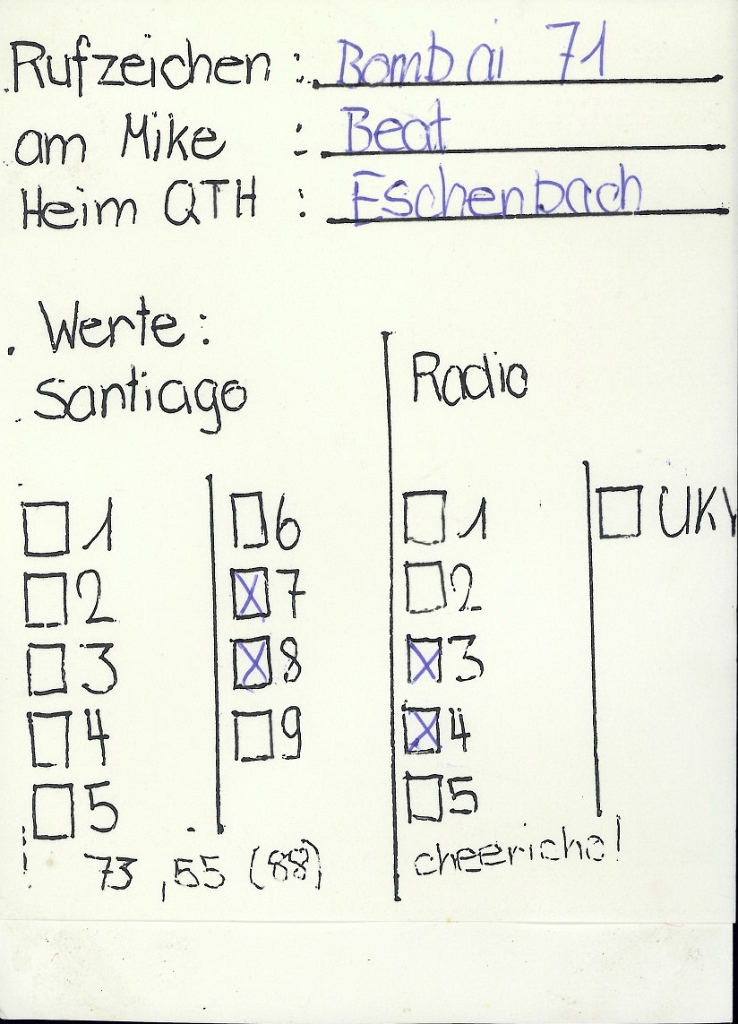 Rufzeichen : Bombai 71
am Mike : Beat
Heim QTH : Eschenbach
Werte :
Santiago
Radio
1
2
3
4
5
6
7
8
9
1
2
3
4
5
73 , 55 (88)
cheericho!